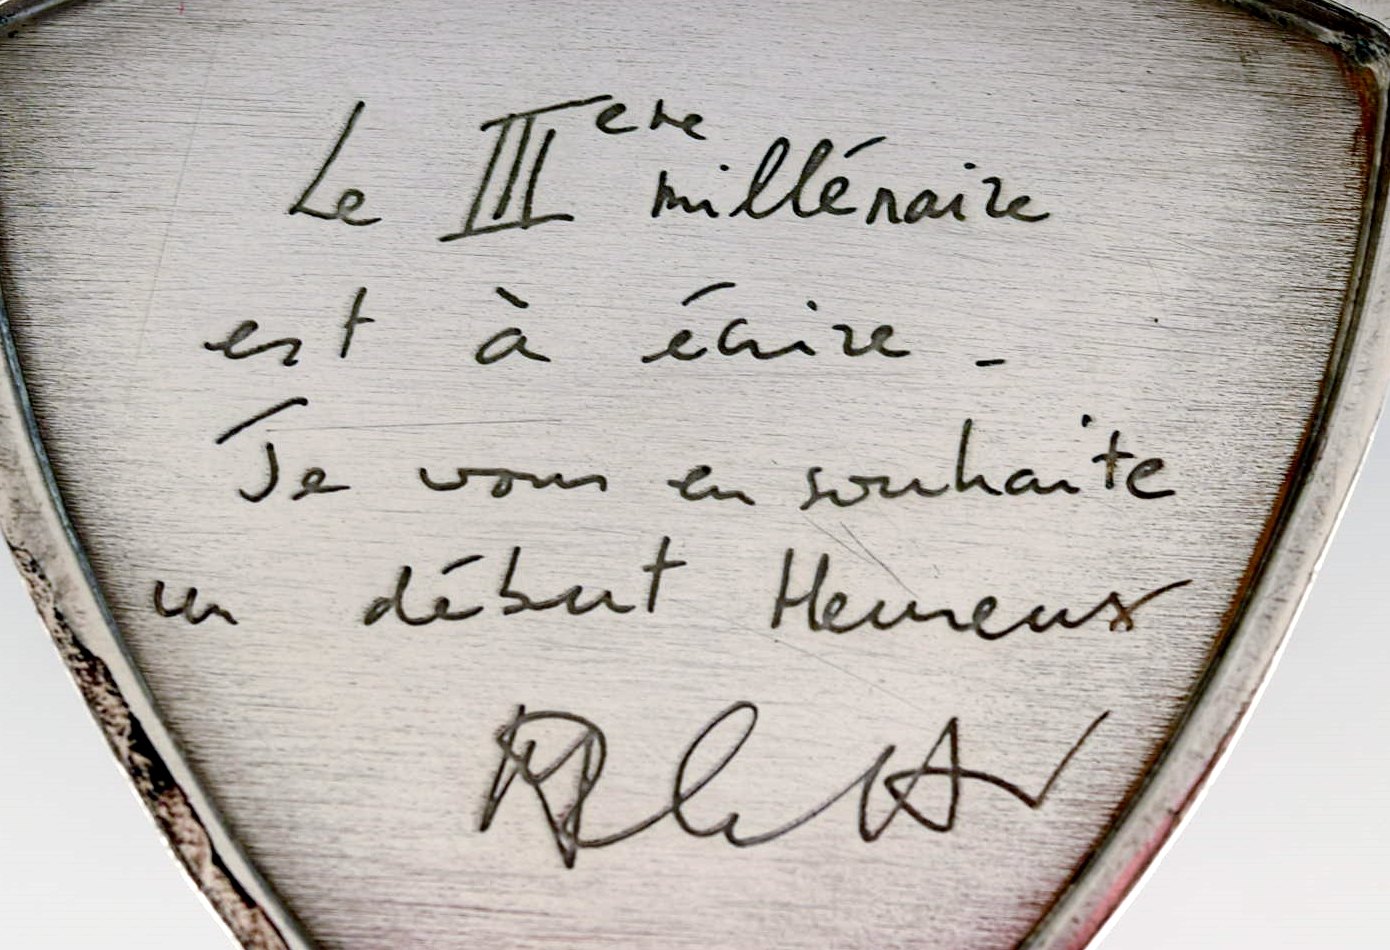 Le IIIeme millénaire
est à écrire -
Je vous en souhaite
un début Heureux